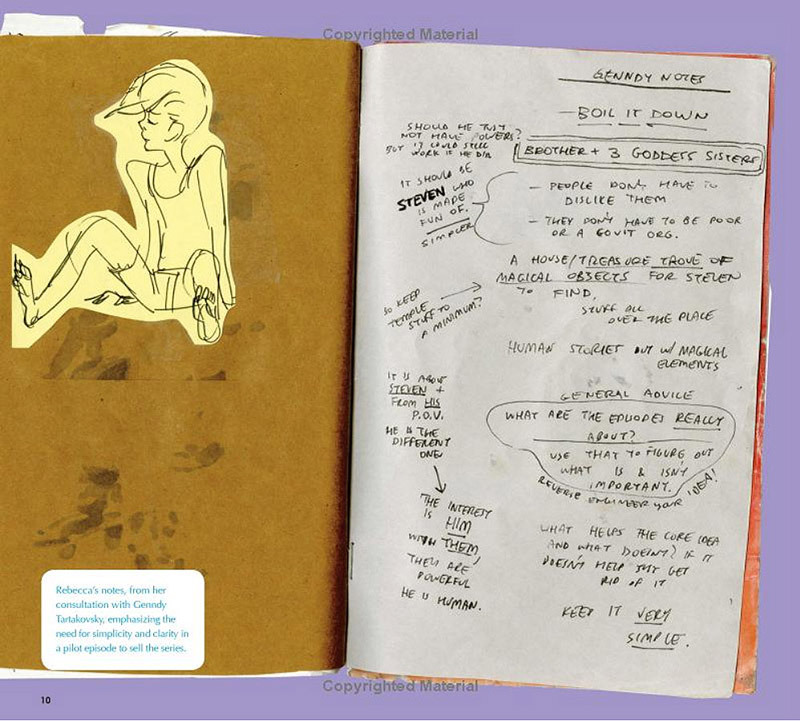 Copyrighted Material
GENNDY NOTES
— BOIL IT DOWN
BROTHER + 3 GODDESS SISTERS
— PEOPLE DON'T HAVE TO
DISLIKE THEM
— THEY DON'T HAVE TO BE POOR
OR A GOV'T ORG.
A HOUSE/TREASURE TROVE OF
MAGICAL OBJECTS FOR STEVEN
TO FIND,
STUFF ALL
OVER THE PLACE
HUMAN STORIES BUT W/ MAGICAL
ELEMENTS
GENERAL ADVICE
WHAT ARE THE EPISODES REALLY
ABOUT?
USE THAT TO FIGURE OUT
WHAT IS & ISN'T
IMPORTANT.
REVERSE ENGINEER YOUR IDEA!
WHAT HELPS THE CORE IDEA
AND WHAT DOESN'T? IF IT
DOESN'T HELP JUST GET
RID OF IT
KEEP IT VERY
SIMPLE.
SHOULD HE JUST
NOT HAVE POWERS?
BUT IT COULD STILL
WORK IF HE DID
IT SHOULD BE
STEVEN WHO
IS MADE
FUN OF.
SIMPLER
SO KEEP
TEMPLE
STUFF TO
A MINIMUM?
IT IS ABOUT
STEVEN +
FROM HIS
P.O.V.
HE IS THE
DIFFERENT
ONE
THE INTEREST
IS HIM
WITH THEM,
THEY ARE
POWERFUL
HE IS HUMAN.
Rebecca's notes, from her
consultation with Genndy
Tartakovsky, emphasizing the
need for simplicity and clarity in
a pilot episode to sell the series.
10
Copyrighted Material